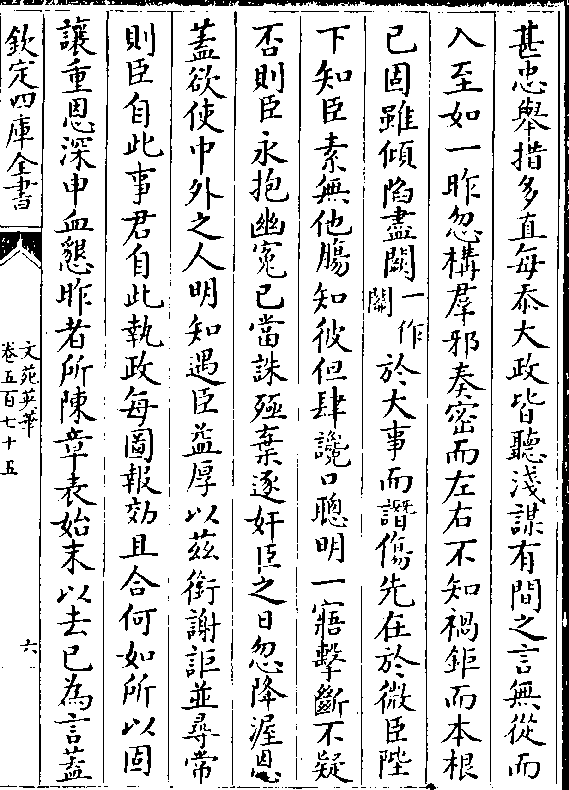 甚忠舉措多直每忝大政皆聽淺謀有間之言無從而
入至如一昨忽構羣邪奏密而左右不知禍鉅而本根
已固雖傾陷盡闗一作關於大事而譖傷先在於微臣陛
下知臣素無他腸知彼但肆讒口聰明一寤擊斷不疑
否則臣永抱幽寃已當誅殛棄逐奸臣之日忽降渥恩
蓋欲使中外之人明知遇臣益厚以兹銜謝詎並尋常
則臣自此事君自此執政每圖報効且合何如所以固
讓重恩深申血懇昨者所陳章表始末以去已為言蓋
欽定四庫全書
文苑英華
卷五百七十五
六